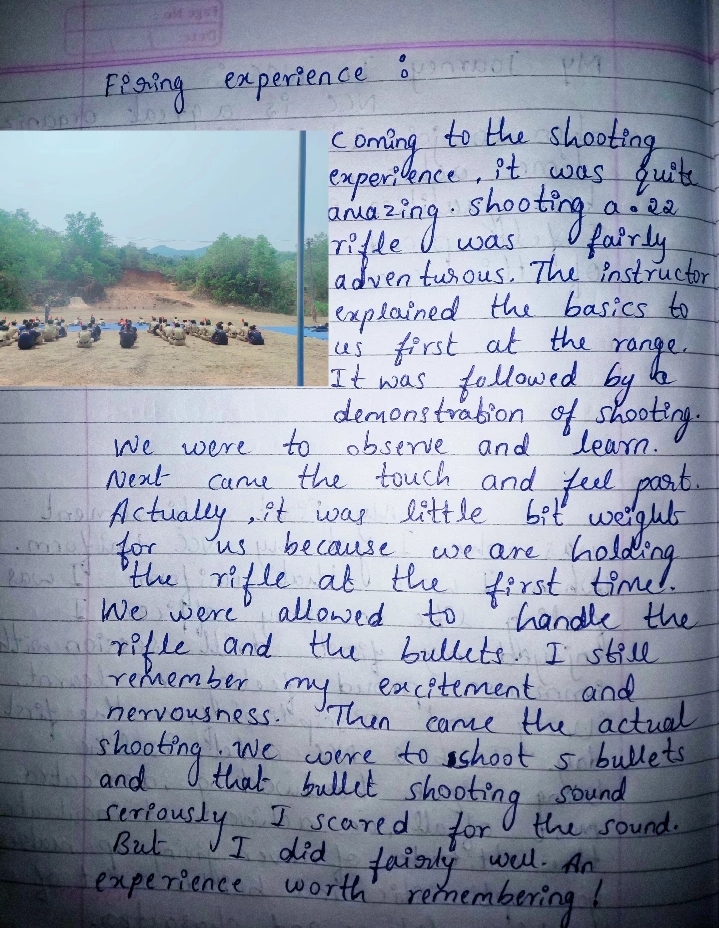 Page No.
Date
Firing experience :
Coming to the shooting
experience, it was quite
amazing. shooting a .22
rifle was fairly
adventurous. The instructor
explained the basics to
us first at the range.
It was followed by a
demonstration of shooting.
We were to observe and learn.
Next came the touch and feel part.
Actually, it was little bit weight
for us because we are holding
the rifle at the first time.
We were allowed to handle the
rifle and the bullets. I still
remember my excitement and
nervousness. Then came the actual
shooting. We were to shoot 5 bullets
and that bullet shooting sound
seriously I scared for the sound.
But I did fairly well. An
experience worth remembering!